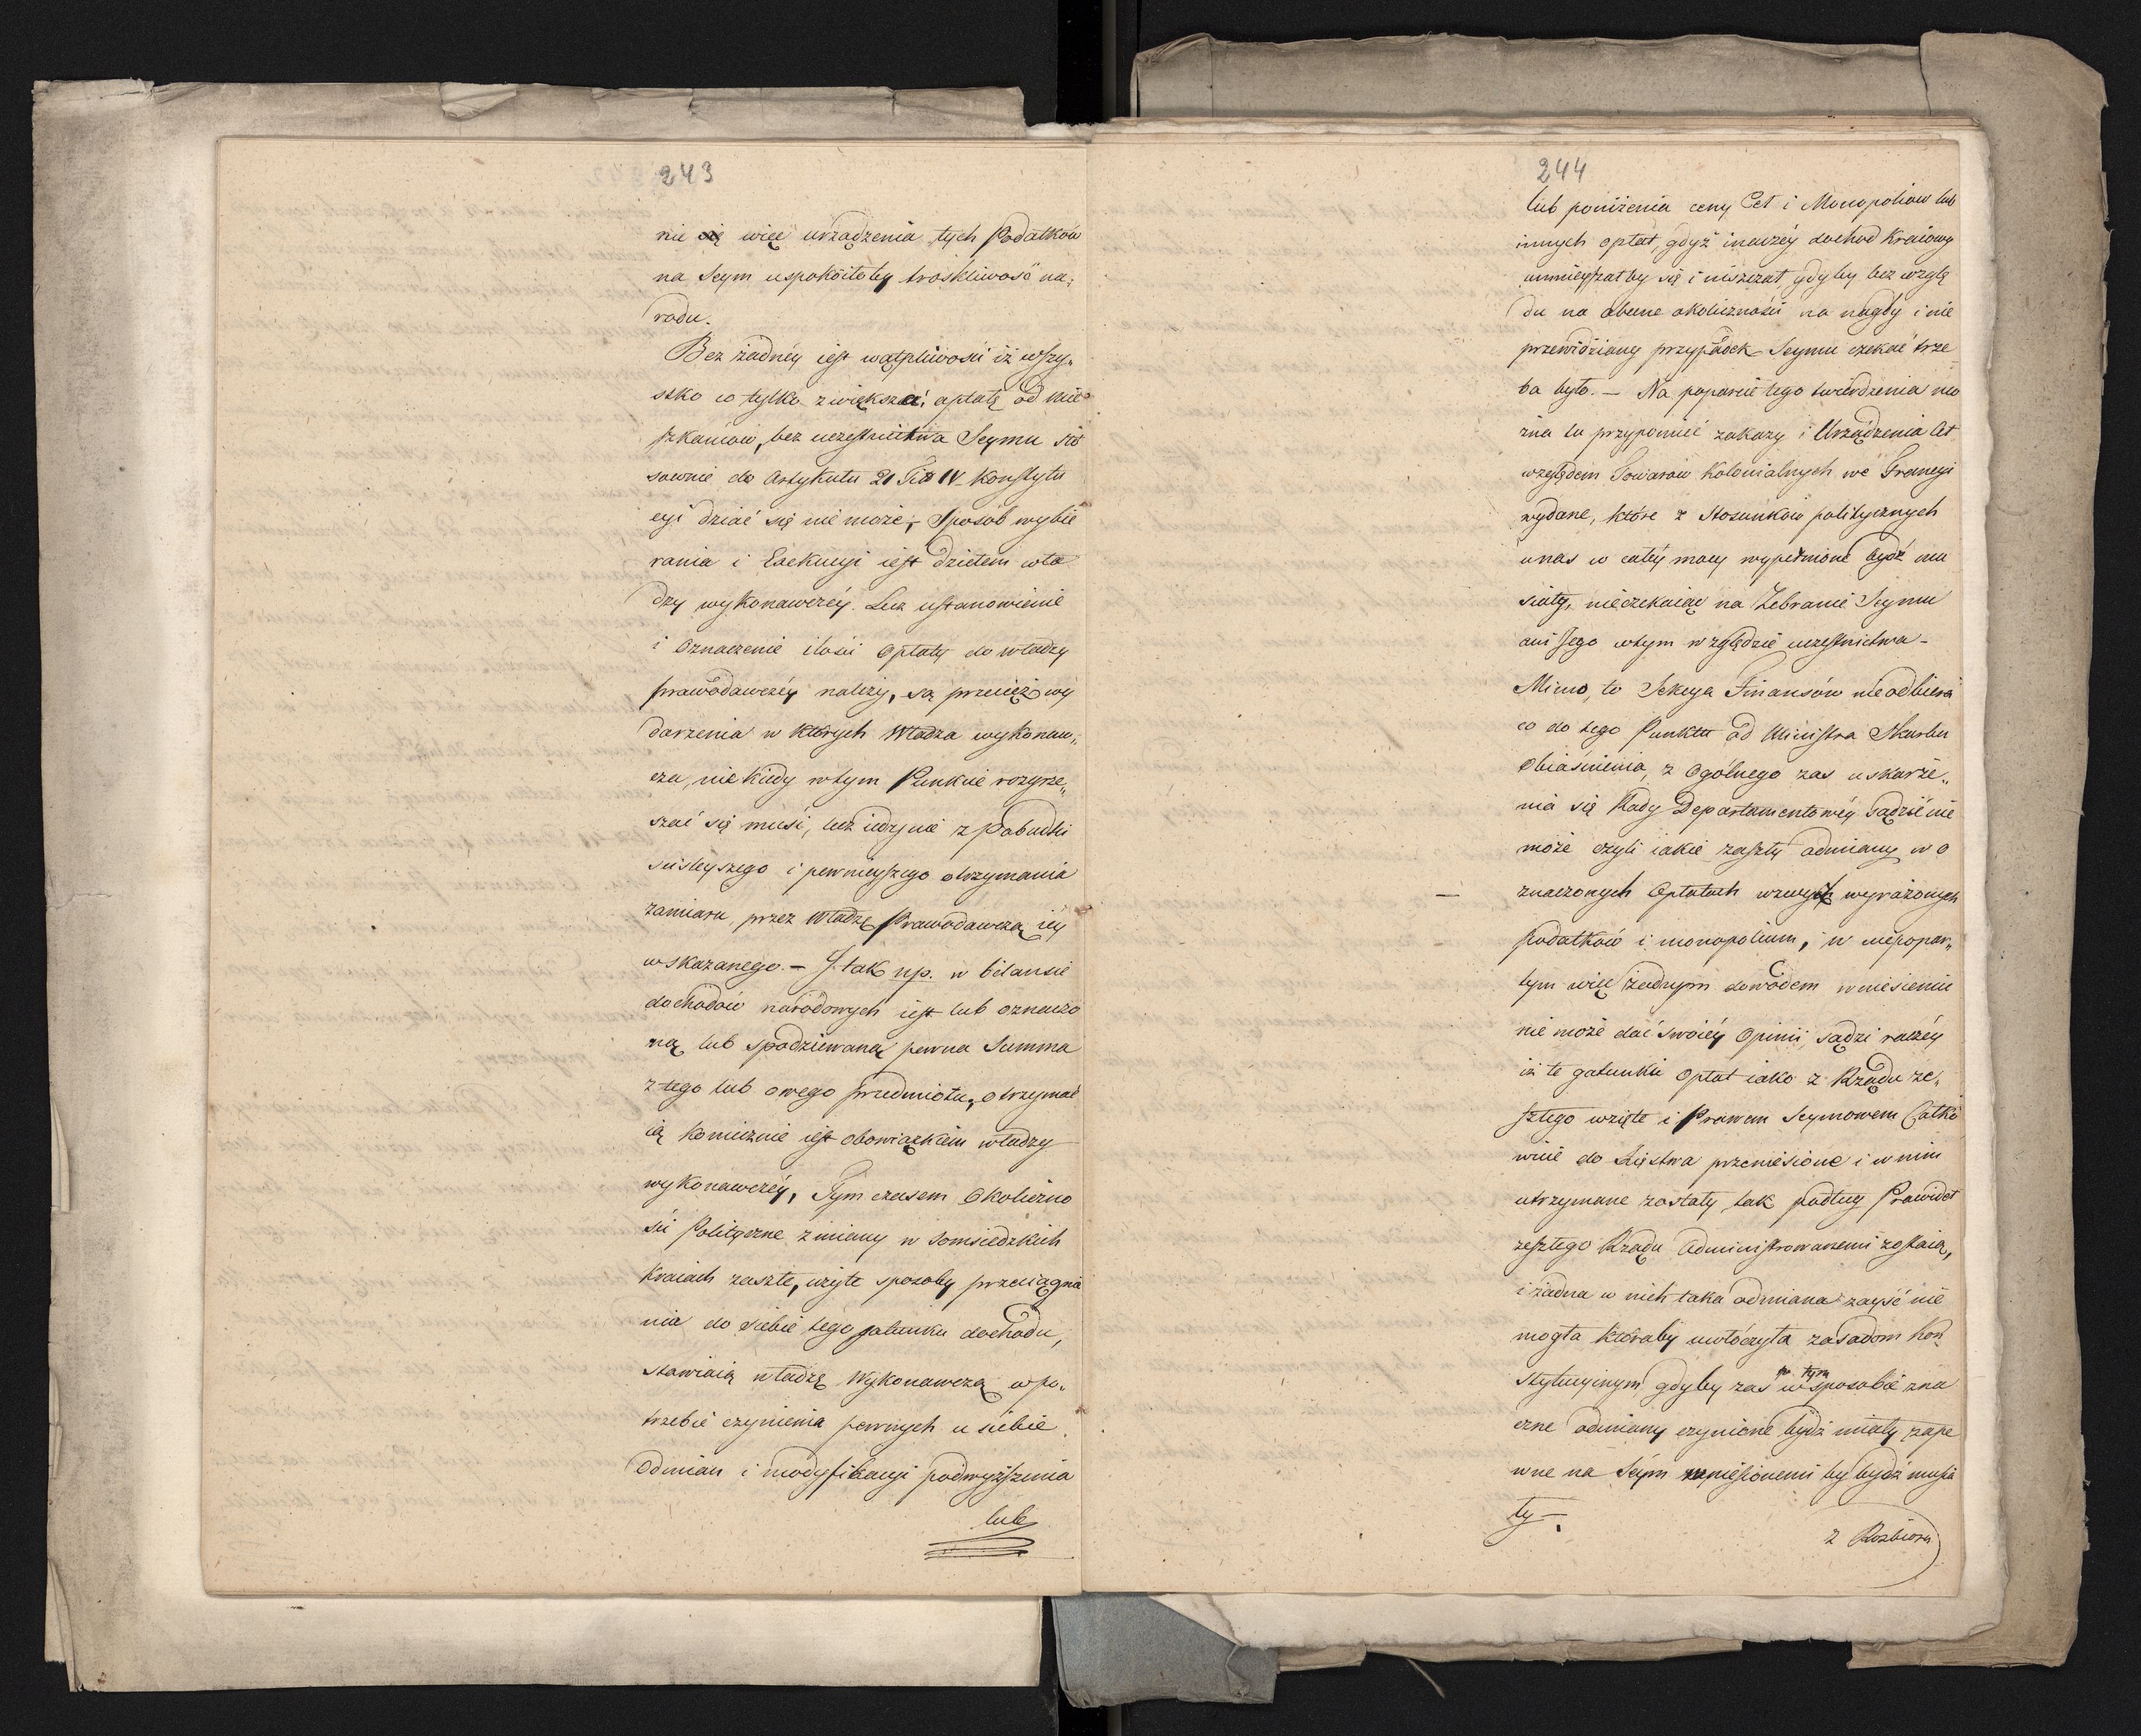 243
nie się więc urządzenia tych Podatków
na Seym uspokoiłoby troskliwość na„
rodu.
Bez żadnéy iest wątpliwości iż wszy„
stko co tylko zwiększać opłatę od mie
szkańców, bez uczestnictwa Seymu sto
sownie do Artykułu 21 Tit: IV Konstytu
cyi dziać się nie może; Sposób wybie
rania i Exekucyi iest dziełem wła
dzy wykonawczéy. Lecz ustanowienie
i Oznaczenie ilości Opłaty do władzy
prawodawczéy należy, są przecież wy
darzenia w których Władza wykonaw„
cza, niekiedy wtym Punkcie rozprze„
szać się musi, lecz iedynie z pobudki
ściśleyszego i pewnieyszego otrzymania
zamiaru przez Władzę Prawodawczą iéy
wskazanego. — I tak np. w bilansie
dochodów narodowych iest lub oznaczo
ną lub spodziewaną pewna Summa
z tego lub owego przedmiotu, otrzymać
ią koniecznie iest obowiązkiem władzy
wykonawczéy, Tym czasem Okoliczno
ści Polityczne zmiany w Somsiedzkich
Kraiach zaszłe, użyte sposoby przeciągnie
nia do siebie tego gatunku dochodu,
stawiaią władzę Wykonawczą w po„
trzebie czynienia pewnych u siebie
Odmian i modyfikacyi podwyższenia
lub
244
lub poniżenia ceny Ceł i Monopoliow lub
innych opłat, gdyż inaczéy dochod kraiowy
umnieyszałby się i niszczał, gdyby bez wzglę
du na obecne okoliczności na nagły i nie
przewidziany przypadek Seymu czekać trze
ba było. — Na poparcie tego twierdzenia mo
żna tu przypomnieć zakazy i Urządzenia Ceł
względem Towarów Kolonialnych we Francyi
wydane, które z Stosunków politycznych
unas w całéy mocy wypełnione bydź mu
siały, nieczekaiąc na Zebranie Seymu
ani Jego wtym względzie uczestnictwa —
Mimo, to Sekcya Finansów nie odbiera
co do tego Punktu od Ministra Skarbu
Obiaśnienia, z Ogólnego zas uskarże„
nia się Rady Departamentowéy sądzić nie
może czyli iakie zaszły odmiany w o
znaczonych Opłatach wzwyż wyrażonych
podatków i monopolium, w niepopar„
tym więc żadnym dowodem wniesieniu
nie może dać swoiéy Opinii, sądzi raczéy
iż te gatunki opłat iako z Rządu ze„
szłego wzięte i Prawem Seymowem Całko
wicie do Xięstwa przeniesione i w nim
utrzymane zostały tak podług Prawideł
zeszłego Rządu Administrowanemi zostaią,
i żadna w nich taka odmiana zayść nie
mogła któraby uwłóczyła zasadom kon
stytucyinym gdyby zas w tym sposobie zna
czne odmiany czynione bydź miały zape
wne na Seym wniesionemi by bydź musia
ły —.
z Rozbioru